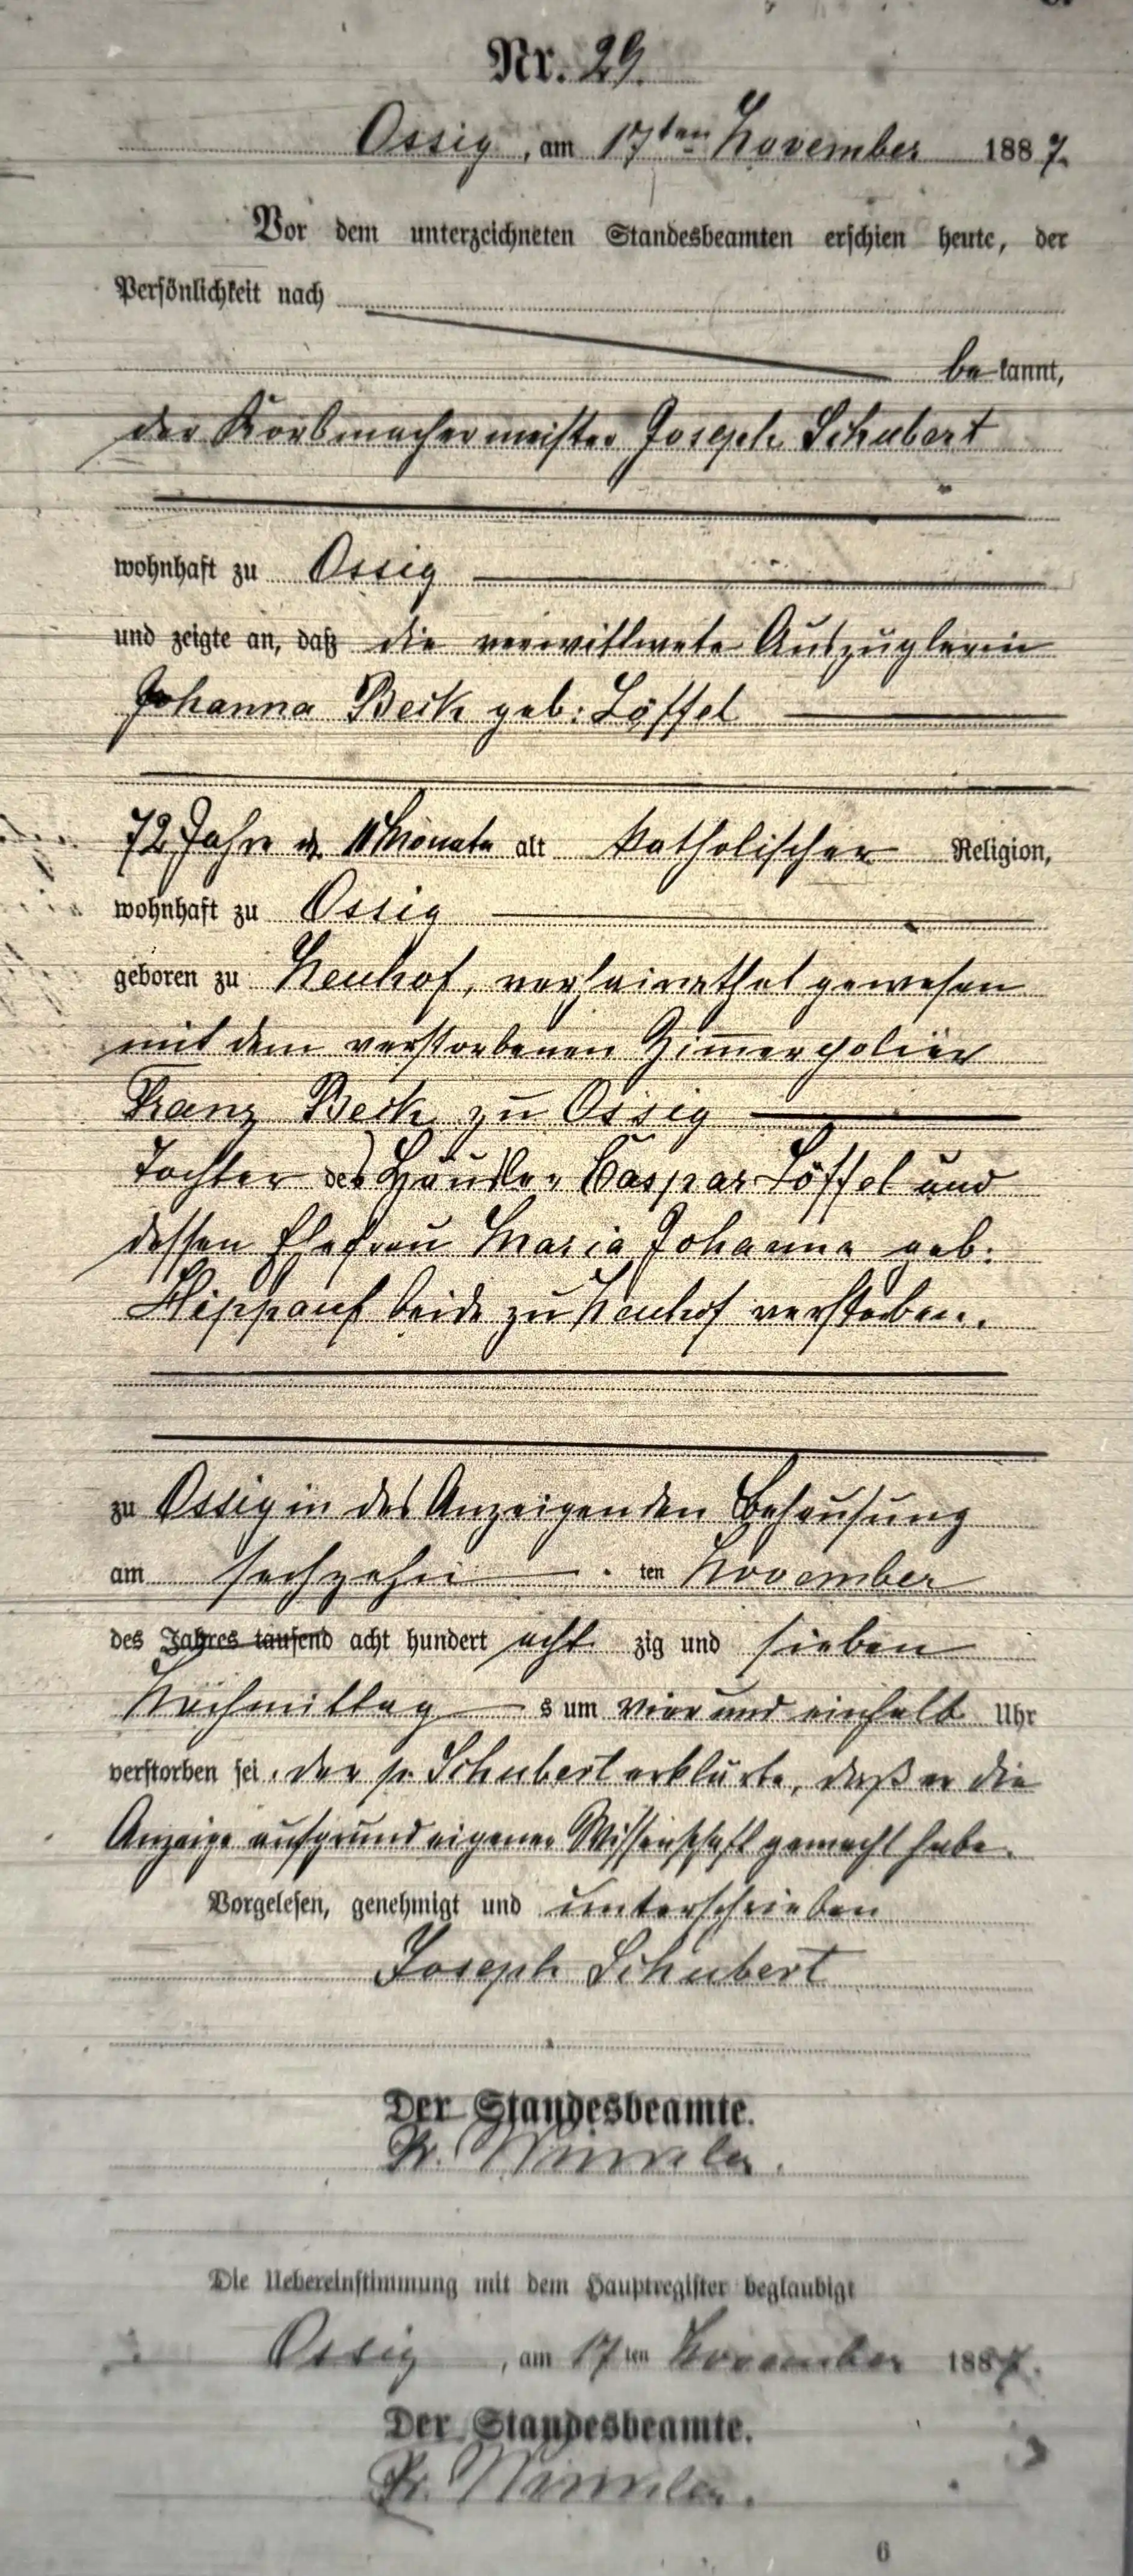 Nr. 29.
Ossig, am 17ten November 1887.
Vor dem unterzeichneten Standesbeamten erschien heute, der
Persönlichkeit nach
be kannt,
der Korbmachermeister Joseph Schubert
wohnhaft zu Ossig
und zeigte an, daß die verwittwete Auszüglerin
Johanna Beck geb: Löffel
72 Jahre 11 Monate alt katholischer Religion,
wohnhaft zu Ossig
geboren zu Neuhof, verheirathet gewesen
mit dem verstorbenen Zimmerpolier
Franz Beck zu Ossig
Tochter des Häusler Caspar Löffel und
dessen Ehefrau Maria Johanna geb:
Hippauf beide zu Neuhof verstorben.
zu Ossig in des Anzeigenden Behausung
am sechzehn ten November
des Jahres tausend acht hundert acht zig und sieben
Nachmittag s um vier und einhalb Uhr
verstorben sei. der p. Schubert erklärte, daß er die
Anzeige aufgrund eigener Wissenschaft gemacht habe.
Vorgelesen, genehmigt und unterschrieben
Joseph Schubert
Der Standesbeamte.
Die Uebereinstimmung mit dem Hauptregister beglaubigt
Ossig, am 17ten November 1887.
Der Standesbeamte.
6